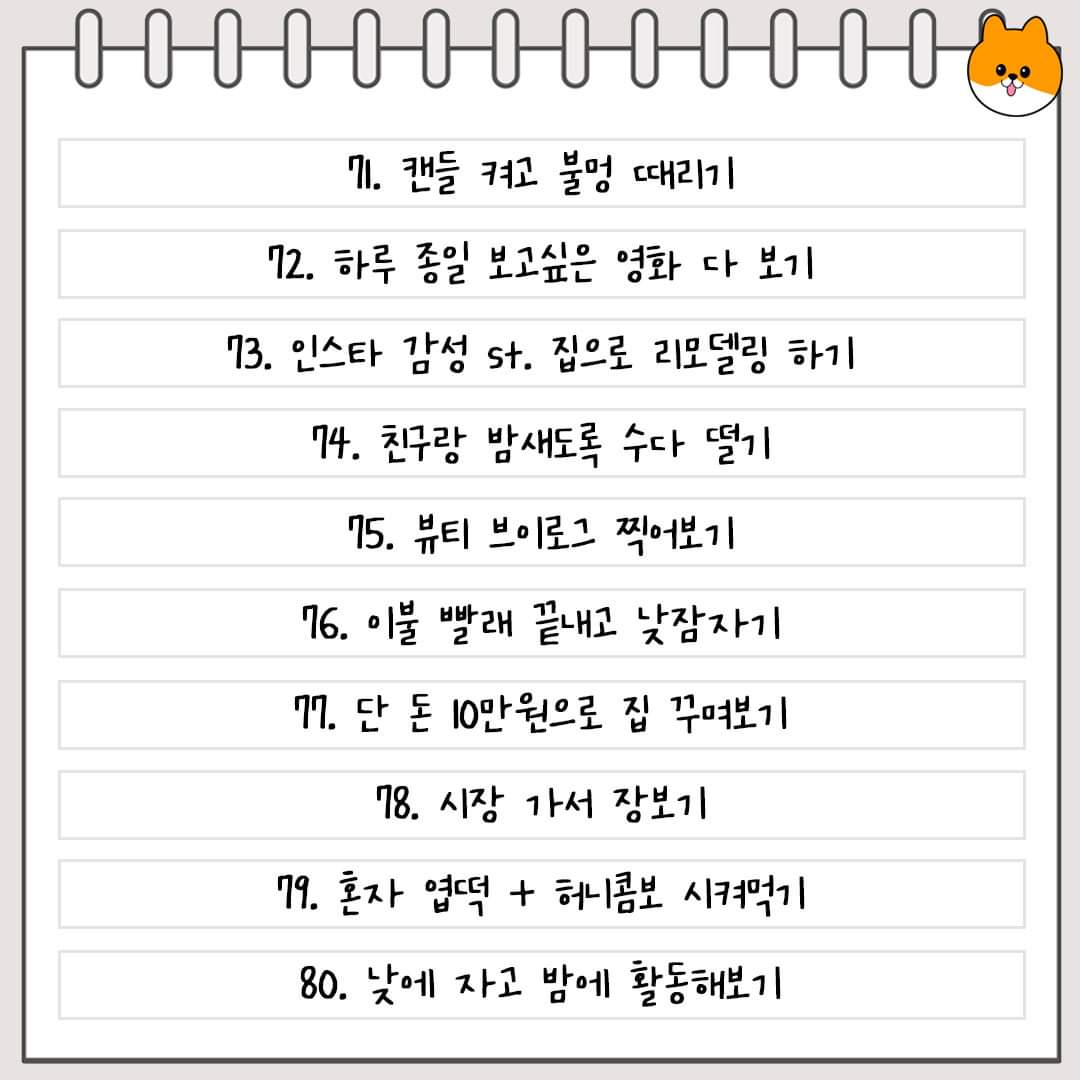 71. 캔들 켜고 불멍 때리기
72. 하루 종일 보고싶은 영화 다 보기
73. 인스타 감성 st. 집으로 리모델링 하기
74. 친구랑 밤새도록 수다 떨기
75. 뷰티 브이로그 찍어보기
76. 이불 빨래 끝내고 낮잠자기
77. 단 돈 10만원으로 집 꾸며보기
78. 시장 가서 장보기
79. 혼자 엽떡 + 허니콤보 시켜먹기
80. 낮에 자고 밤에 활동해보기